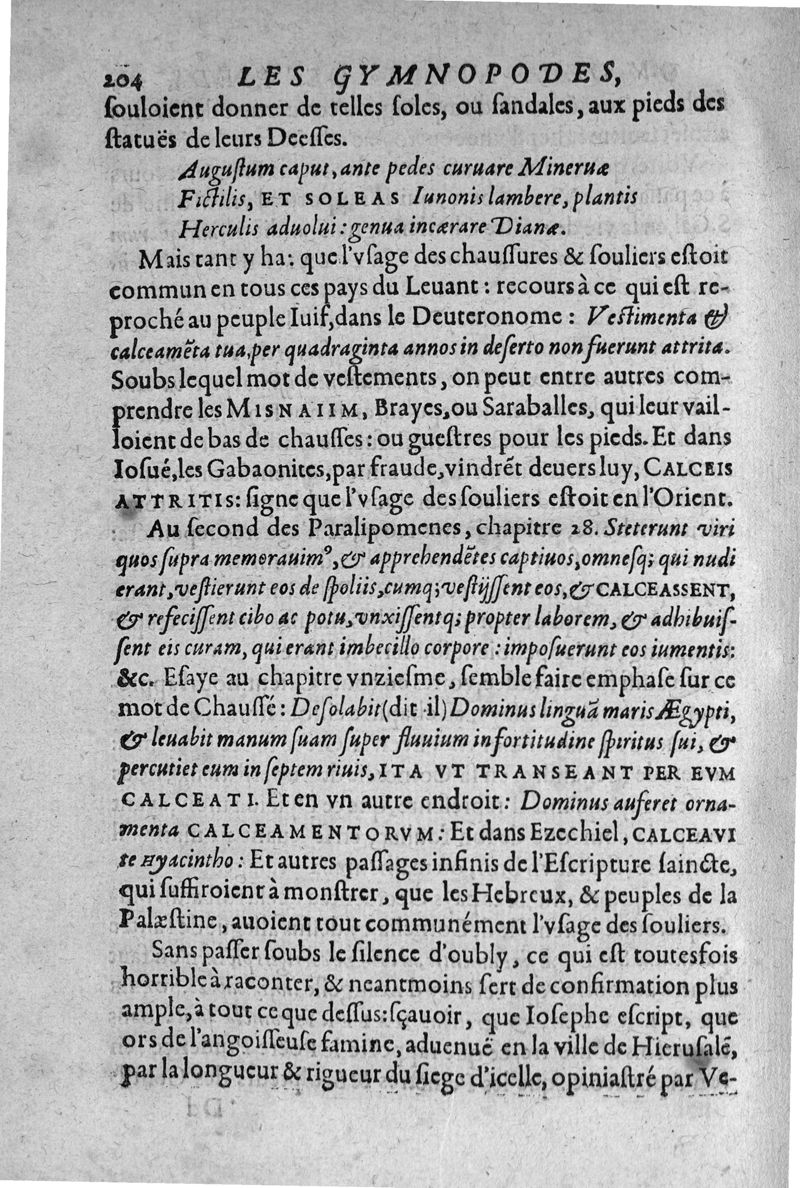 204 LES GYMNOPODES,
ſouloient donner de telles ſoles, ou ſandales, aux pieds des
ſtatuës de leurs Deeſſes.
Auguſtum caput, ante pedes curuare Mineruæ
Fictilis, ET SOLEAS Iunonis lambere, plantis
Herculis aduolui: genua incærare Dianæ.
Mais tant y ha: que l'vſage des chauſſures & ſouliers eſtoit
commun en tous ces pays du Leuant: recours à ce qui eſt re-
proché au peuple Iuif, dans le Deuteronome: Veſtimenta &
calceamẽta tua, per quadraginta annos in deſerto non fuerunt attrita.
Soubs lequel mot de veſtements, on peut entre autres com-
prendre les MISNAIIM, Brayes, ou Saraballes, qui leur vail-
loient de bas de chauſſes: ou gueſtres pour les pieds. Et dans
Ioſué, les Gabaonites, par fraude, vindrẽt deuers luy, CALCEIS
ATTRITIS: ſigne que l'vſage des ſouliers eſtoit en l'Orient.
Au ſecond des Paralipomenes, chapitre 28. Steterunt viri
quos ſupra memorauimꝰ, & apprehendẽtes captiuos, omneſq; qui nudi
erant, veſtierunt eos de ſpoliis, cumq; veſtijſſent eos, & CALCEASSENT,
& refeciſſent cibo ac potu, vnxiſſentq; propter laborem, & adhibuiſ-
ſent eis curam, qui erant imbecillo corpore: impoſuerunt eos iumentis:
&c. Eſaye au chapitre vnzieſme, ſemble faire emphaſe ſur ce
mot de Chauſſé: Deſolabit (dit il) Dominus linguã maris Ægypti,
& leuabit manum ſuam ſuper fluuium in fortitudine ſpiritus ſui, &
percutiet eum in ſeptem riuis, ITA VT TRANSEANT PER EVM
CALCEATI. Et en vn autre endroit: Dominus auferet orna-
menta CALCEAMENTORVM: Et dans Ezechiel, CALCEAVI
te Hyacintho: Et autres paſſages infinis de l'Eſcripture ſaincte,
qui ſuffiroient à monſtrer, que les Hebreux, & peuples de la
Palæſtine, auoient tout communément l'vſage des ſouliers.
Sans paſſer ſoubs le ſilence d'oubly, ce qui eſt toutesfois
horrible à raconter, & neantmoins ſert de confirmation plus
ample, à tout ce que deſſus: ſçauoir, que Ioſephe eſcript, que
ors de l'angoiſſeuſe famine, aduenuë en la ville de Hieruſalẽ,
par la longueur & rigueur du ſiege d'icelle, opiniaſtré par Ve-